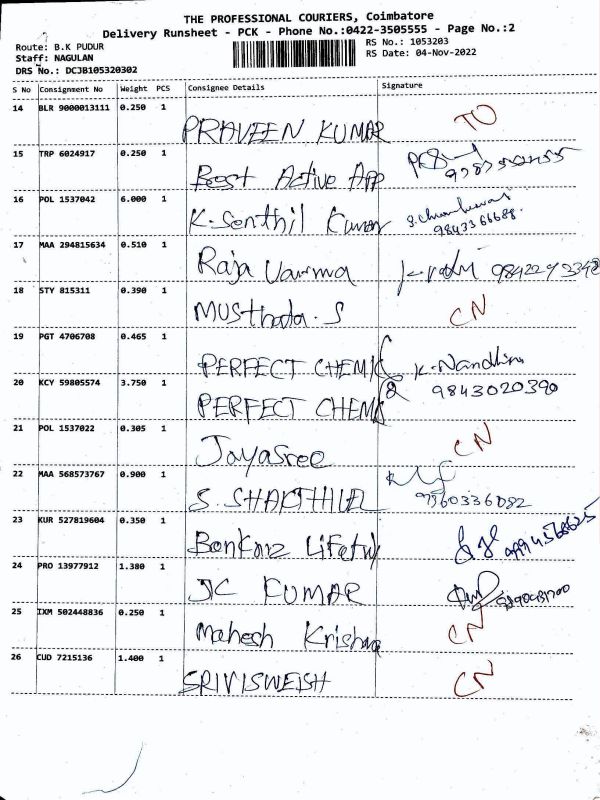 THE PROFESSIONAL COURIERS, Coimbatore
Delivery Runsheet - PCK - Phone No.:0422-3505555 - Page No.:2
Route: B.K PUDUR
RS No.: 1053203
Staff: NAGULAN
RS Date: 04-Nov-2022
DRS No.: DCJB105320302
S No Consignment No Weight PCS Consignee Details Signature
14 BLR 9000013111 0.250 1 PRAVEEN KUMAR TO
15 TRP 6024917 0.250 1 Best Active App
16 POL 1537042 6.000 1 K. Senthil Kumar
9843366688.
17 MAA 294815634 0.510 1 Raja Varma
18 STY 815311 0.390 1 MUSthafa. S CN
19 PGT 4706708 0.465 1 PERFECT CHEMIC K. Nandhini
20 KCY 59805574 3.750 1 PERFECT CHEMIC 9843020390
21 POL 1537022 0.305 1 Jayasree CN
22 MAA 568573767 0.900 1 S. SHAKTHIVEL
9360336082
23 KUR 527819604 0.350 1
24 PRO 13977912 1.380 1 JC KUMAR
25 IXM 502448836 0.250 1 Mahesh Krishna CN
26 CUD 7215136 1.400 1 SRIVISWESH CN